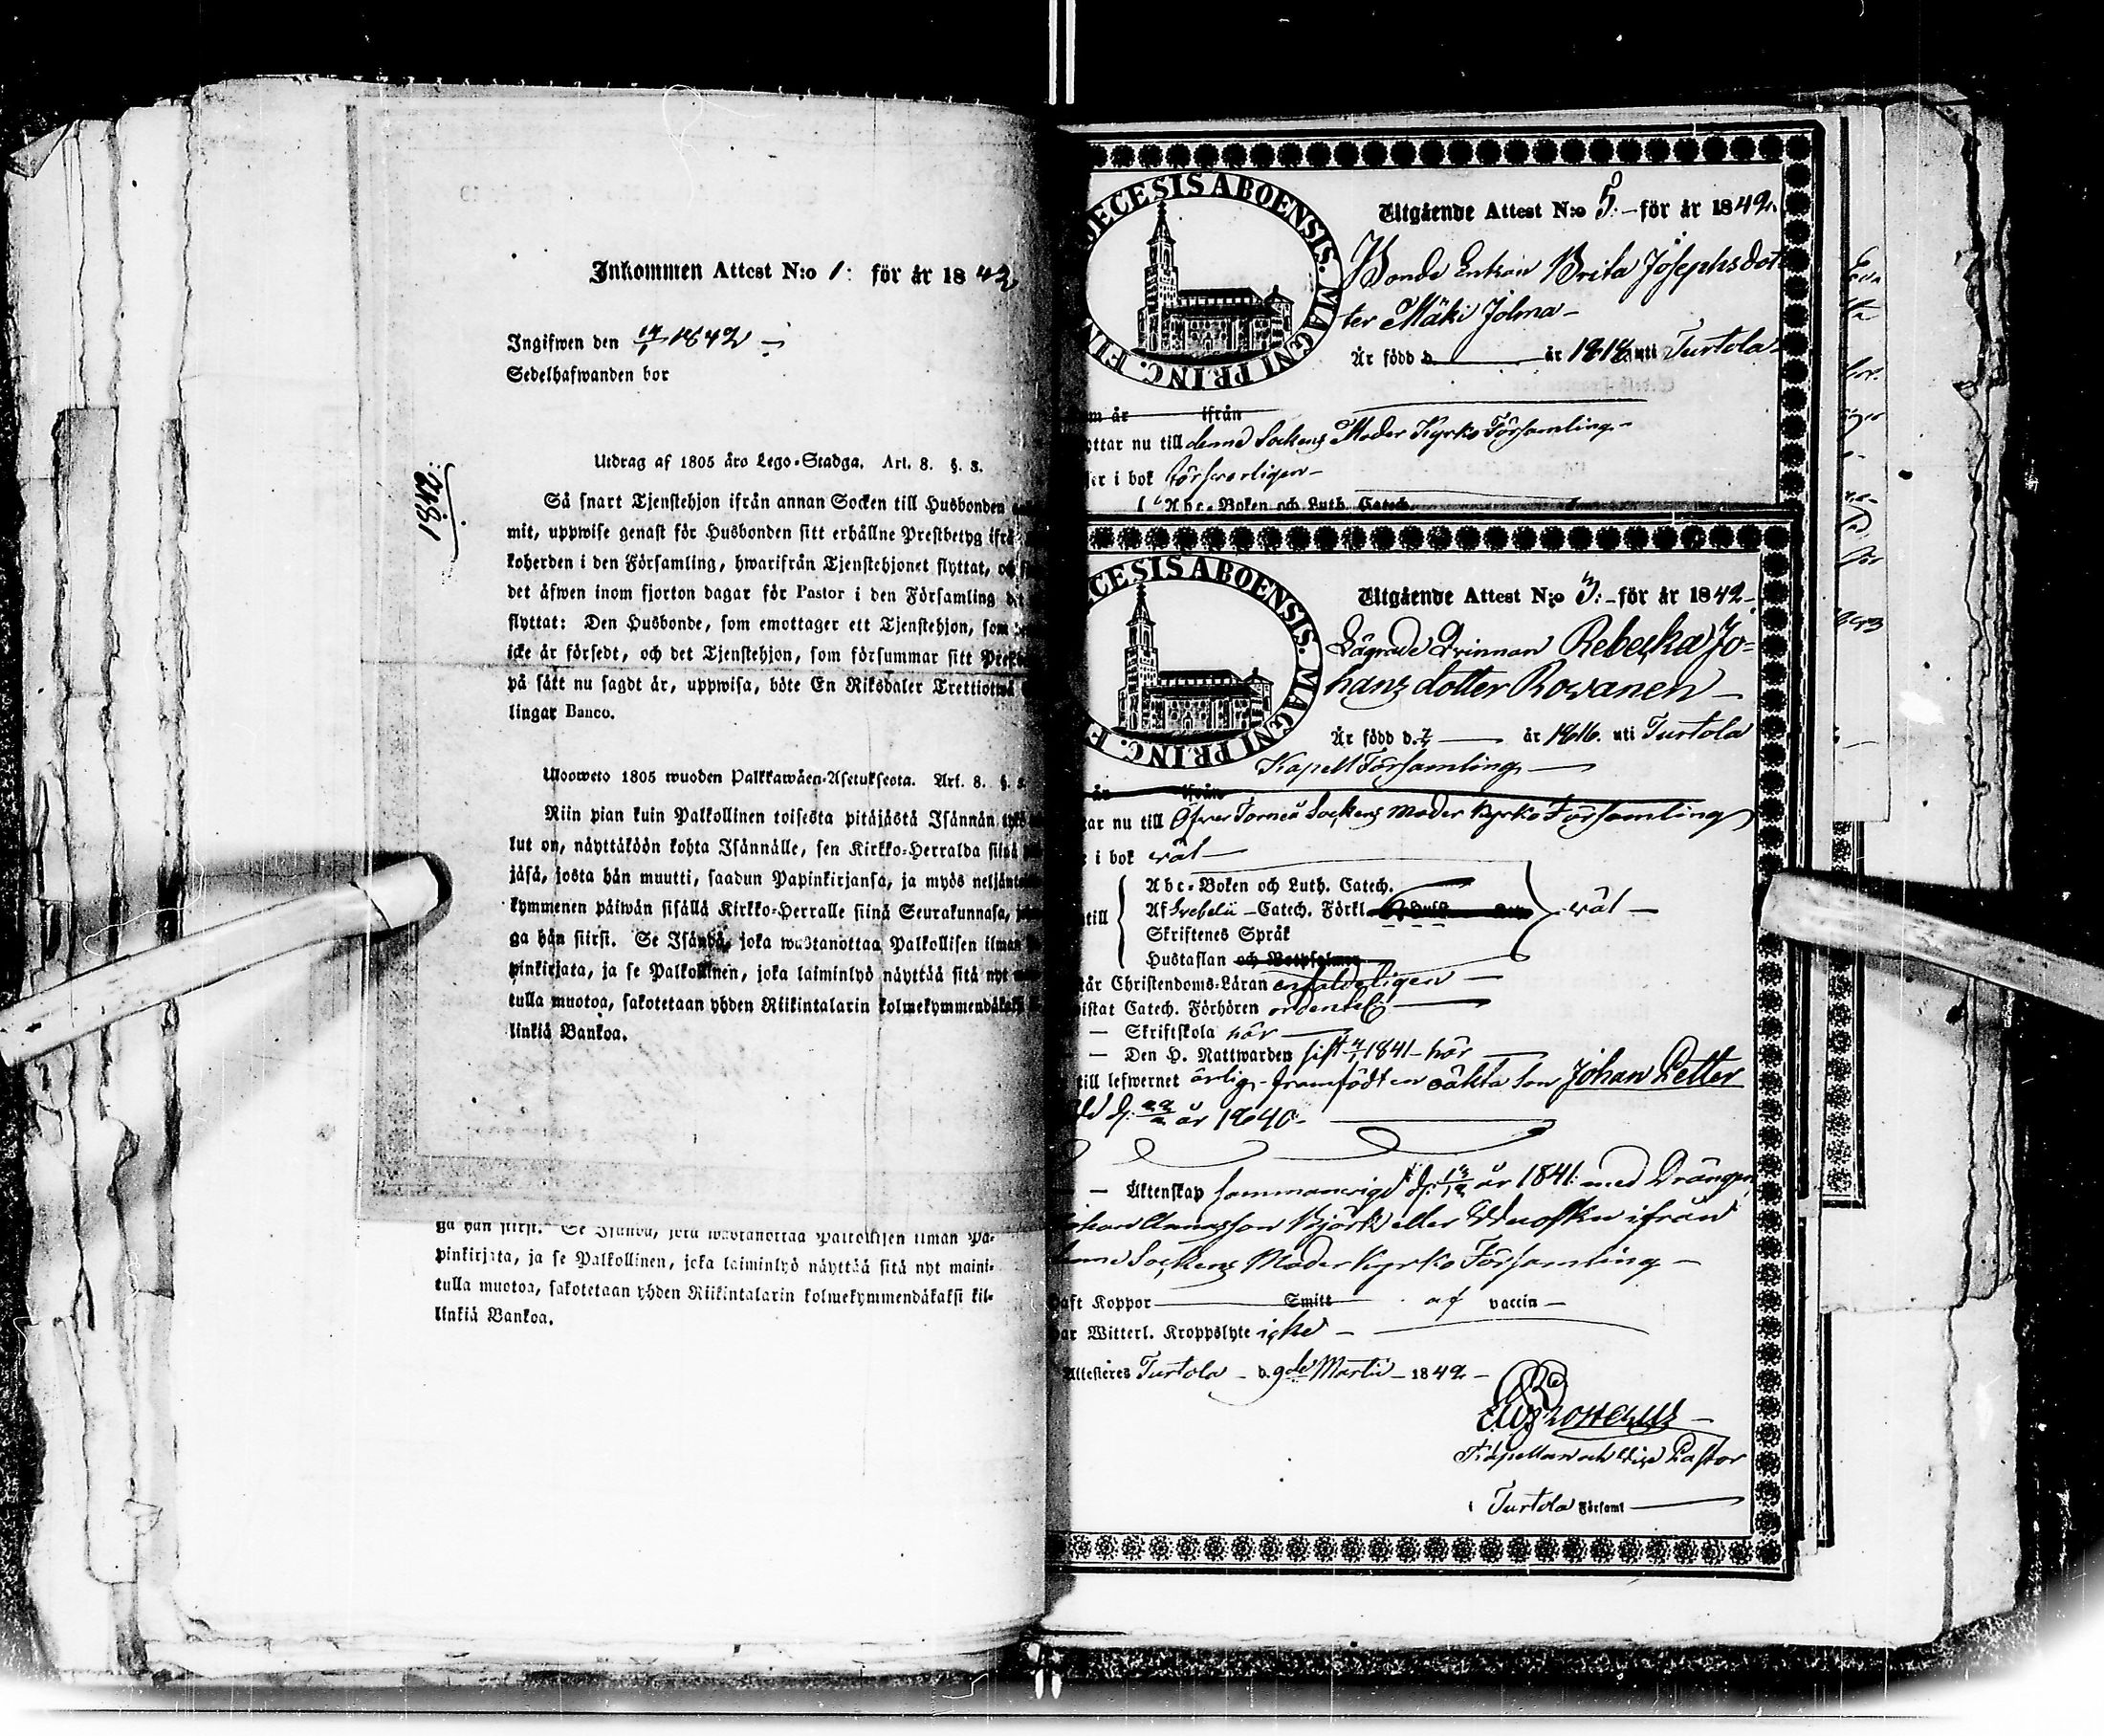 Inkommen Attest N:o 1: för år 1842
Ingifwen den 14/1 1842
Sedelhafwanden bor
1842:
Utdrag af 1805 års Lego-Stadga. Art. 8. §. 3.
Så snart Tjenstehjon ifrån annan Socken till Husbonden
mit, uppwise genast för Husbonden sitt erhållne Prestbetyg ifrå
koherden i den Församling, hwarifrån Tjenstehjonet flyttat, och
det åfwen inom fjorton dagar för Pastor i den Församling dit
flyttat: Den Husbonde, som emottager ett Tjenstehjon, som
icke är försedt, och det Tjenstehjon, som försummar sitt Prest
på sått nu sagdt är, uppwisa, böte En Riksdaler Trettiotwå
lingar Banco.
Uloosweto 1805 wuoden Palkkawäen-Asetuksesta. Art. 8. §. 3.
Niin pian kuin Palkollinen toisesta pitäjästä Isännän tykö
lut on, näyttäköön kohta Isännälle, sen Kirkko-Herralda siinä
jäsä, josta hän muutti, saadun Papinkirjansa, ja myös neljänto
kymmenen päiwän sisällä Kirkko-Herralle siinä Seurakunnasa,
ga hän siirsi. Se Isändä, joka wastanottaa Palkollisen ilman
pinkirjata, ja se Palkollinen, joka laiminlyö näyttää sitä nyt
tulla muotoa, sakotetaan yhden Riikintalarin kolmekymmendäkaksi
linkiä Bankoa.
ga hän siirsi. Se Isändä, joka wastanottaa Palkollisen ilman Pa-
pinkirjata, ja se Palkollinen, joka laiminlyö näyttää sitä nyt maini-
tulla muotoa, sakotetaan yhden Riikintalarin kolmekymmendäkaksi kil-
linkiä Bankoa.
ECESIS ABOENSIS. MAGNI PRINC. FIN
Utgående Attest N:o 5. för år 1842.
Bonde Enkan Brita Josephsdot
ter Mäki Jolma
Är född d. år 1818 uti Turtola
om år ifrån
ottar nu till denne Sockens Moder Kyrko Församling
er i bok försvarligen
Abc-Boken och Luth. Catech.
CESIS ABOENSIS. MAGNI PRINC. F
Utgående Attest N:o 3. för år 1842
Lägrade Qvinnan Rebecka Jo=
hans dotter Rovanen
Är född d. 7/4 år 1816. uti Turtola
Kapell Församling
år ifrån
tar nu till Öfver Torneå Sockens Moder Kyrko Församling
i bok väl
till
Abc-Boken och Luth. Catech.
Af Svebelii Catech. Förkl väl
Skriftenes Språk
Hustaflan och Botpsalmer
tår Christendoms-Läran enfaldeligen
istat Catech. Förhören ordentel.
Skriftskola här
Den H. Nattwarden sist 4/1 1841 här
till lefwernet ärlig, framfödt en oäkta son Johan Petter
född d. 22/2 år 1840.
Äktenskap sammanvigd d. 13/12 år 1841. med Drängen
Johan Anansson Björk eller Wuosku ifrån
denne Sockens Moder Kyrko Församling
Haft Koppor Smitt af vaccin
Har Witterl. Kroppslyte icke
Attesteres Turtola d. 9de Martii 1842
Kapellan och Vice Pastor
i Turtola Församl